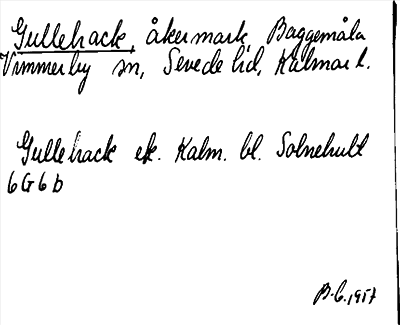 Gullehack, åkermark, Baggemåla
Vimmerby sn, Sevede hd, Kalmar l.
Gullehack ek. Kalm. bl. Solnehult
6G6b
B.G. 1957